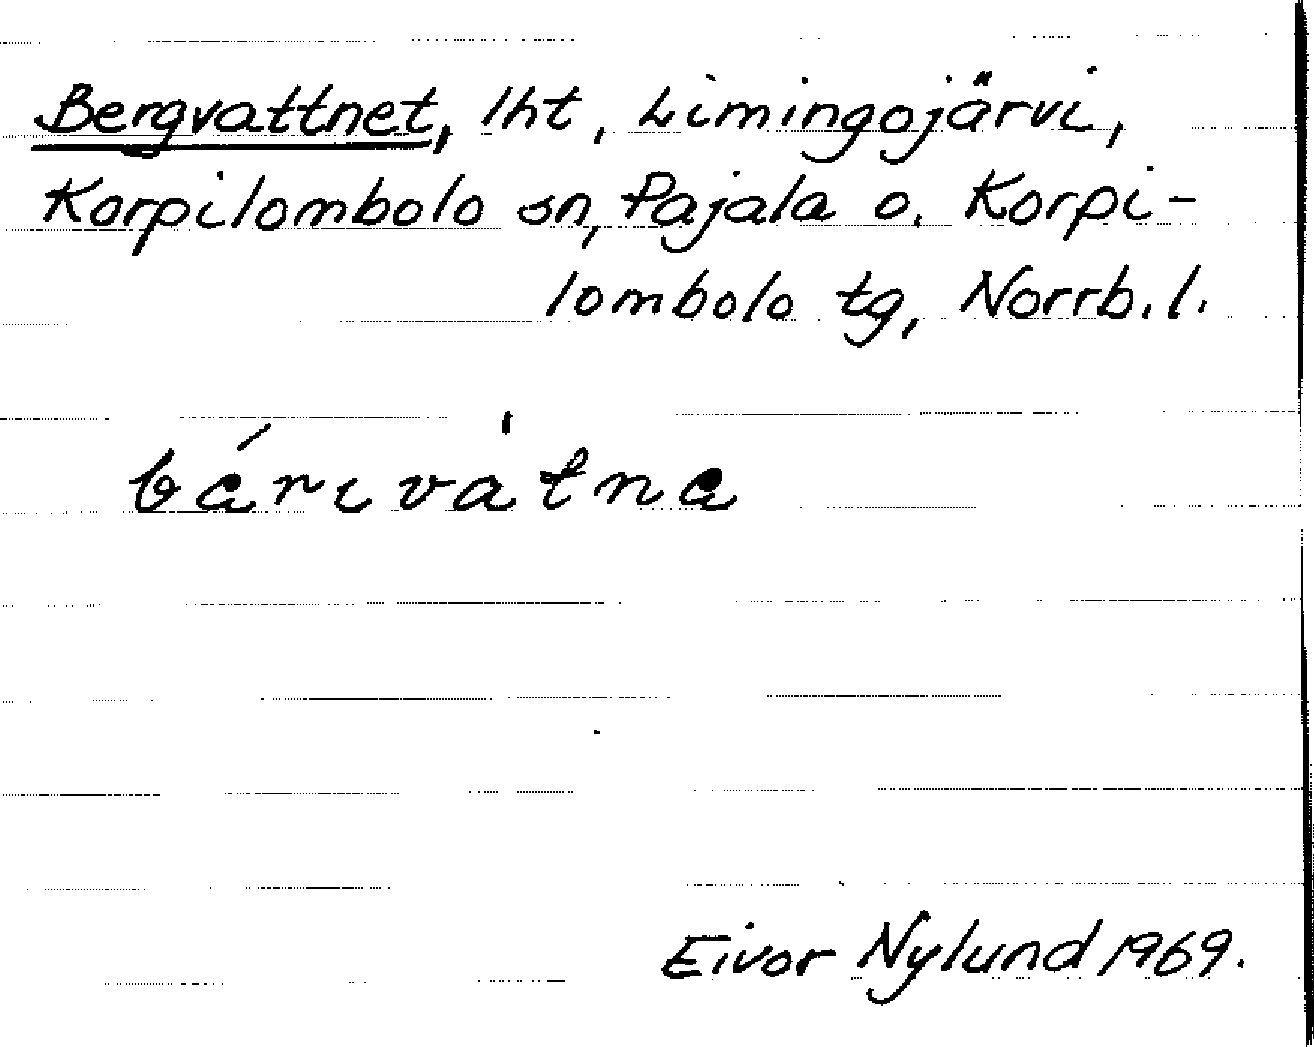 Bergvattnet, lht, Limingojärvi,
Korpilombolo sn, Pajala o. Korpi-
lombolo tg, Norrb.l.
bárιvàtna
Eivor Nylund 1969.